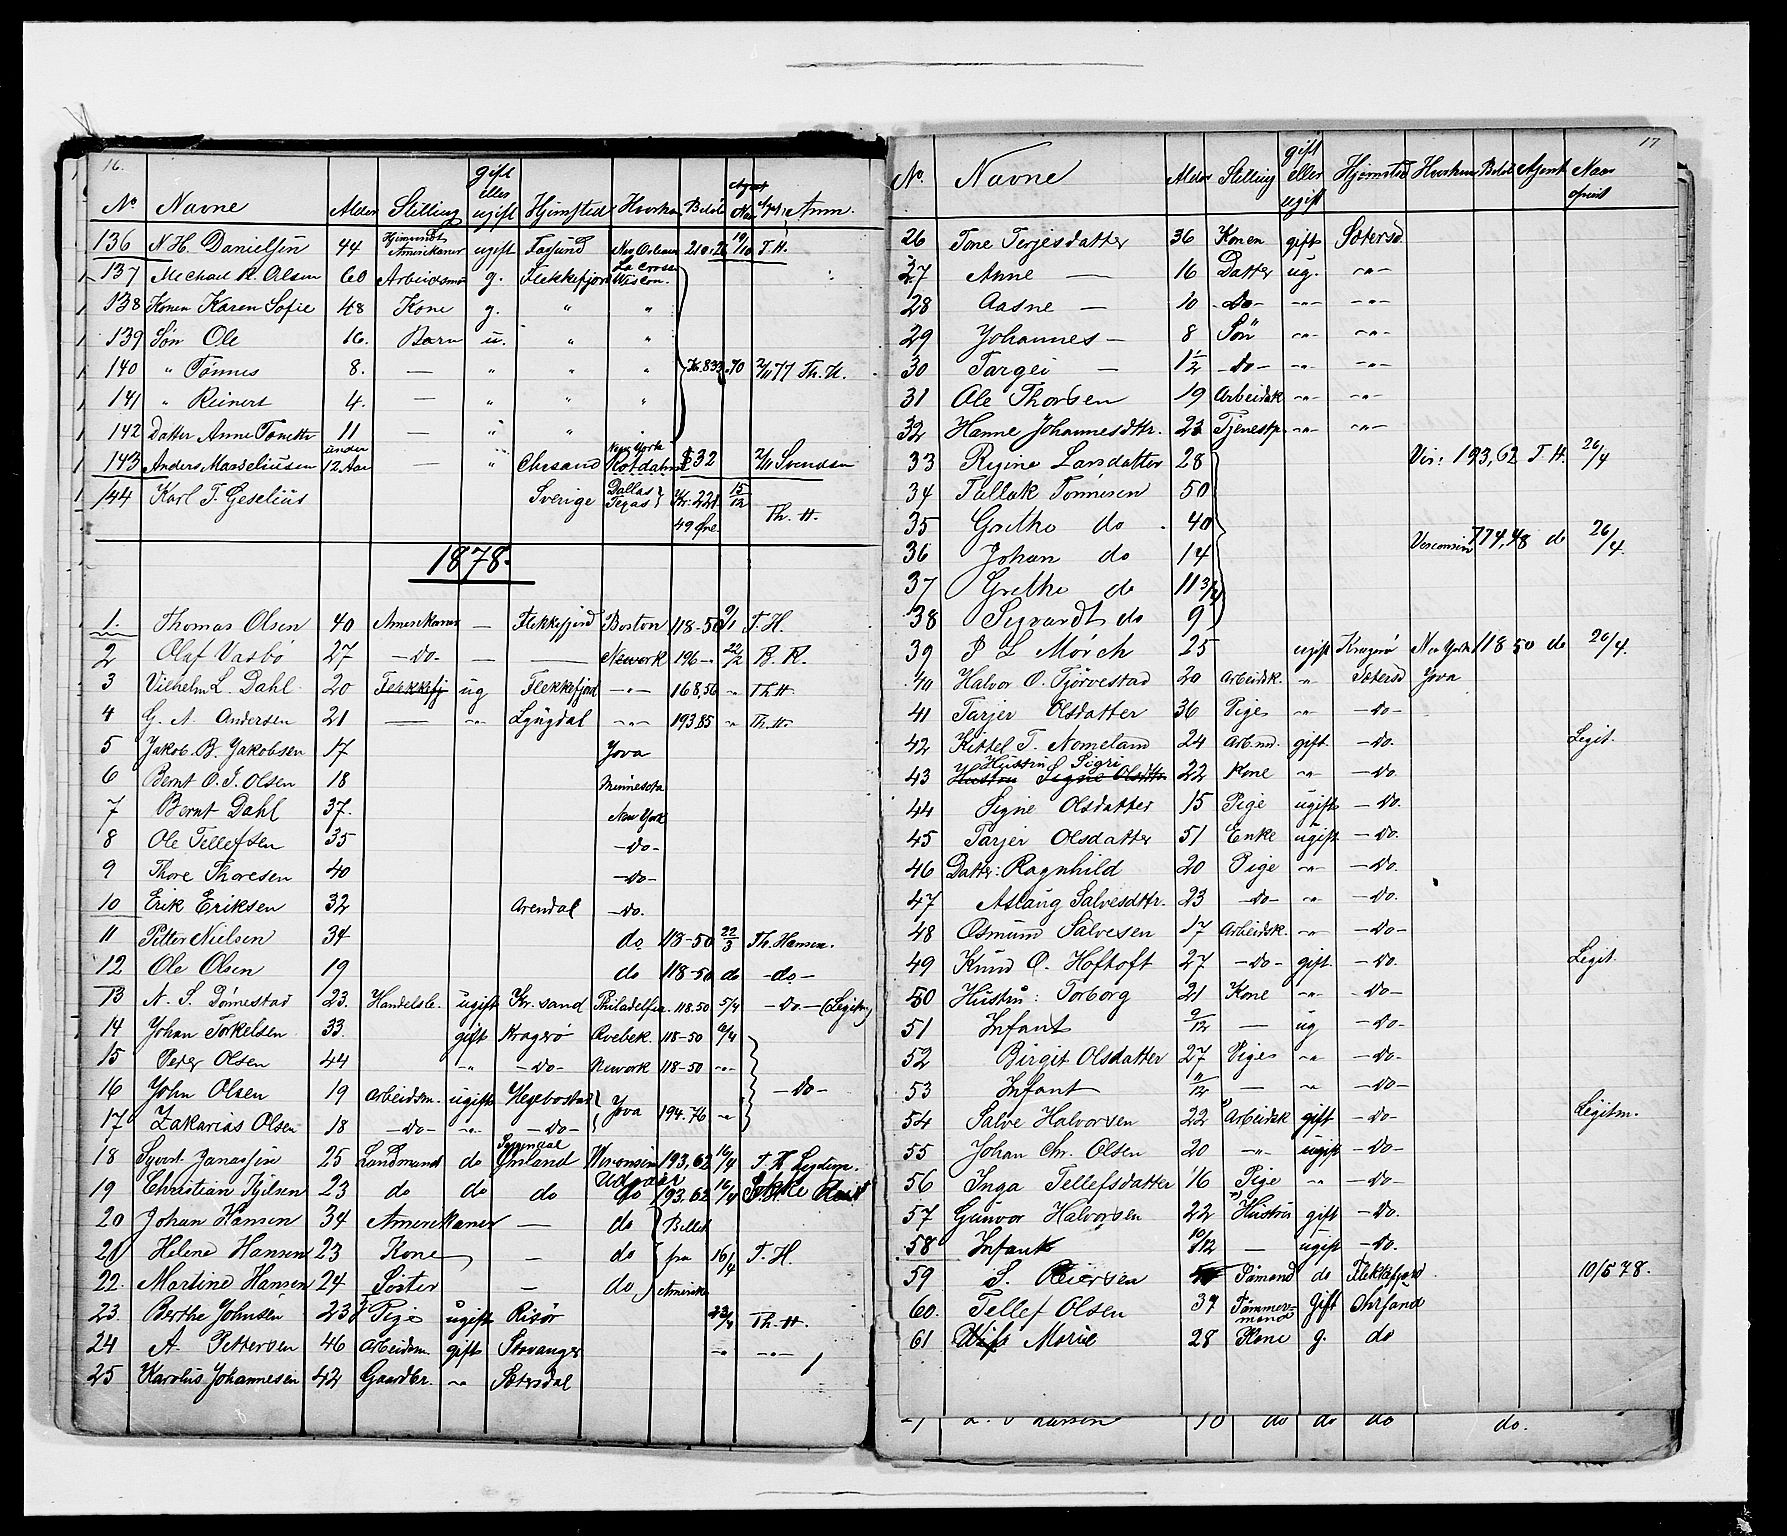 16.
No Navne Alder Stilling gift eller ugift Hjemsted Hvorhen Beløb Afrejst Naar Agt. Anm.
136 N. H. Danielsen 44 Hjemvendt Amerikaner ugift Farsund New Orleans 210-26 19/10 T. H.
137 Michael R. Olsen 60 Arbeidsm g. Flekkefjord La Cross Wiscon.
138 Konen Karen Sofie 48 Kone g. " "
139 Søn Ole 16. Barn u. " "
140 " Tønnes 8. — " " " Kr. 833,70 2/11 77 Th. H.
141 " Reinert 4. — " " "
142 Datter Anne Tonette 11 — " "
143 Anders Mardeliusen under 12 Aar — " Chrsand New York Rotdahl $32 2/11 Svendsen
144 Karl T. Geselius Sverige Dallas Texas Kr. 221 49 Øre 15/12 Th. H.
1878.
1. Thomas Olsen 40 Amerikaner — Flekkefjord Boston 118-50 9/1 T. H.
2 Olaf Vasbø 27 -do- — — Nework 196- 22/2 B. R.
3 Vilhelm L. Dahl 20 Flekkefj ug Flekkefjord -"- 168,56 " Th H
4 G. A. Andersen 21 — -"- Lyngdal -"- 193.85 " Th. H.
5 Jakob B. Jakobsen 17 Jova
6 Bernt O. G. Olsen 18 Minnesota
7 Bernt Dahl 37. New York
8 Ole Tellefsen 35 -do-
9 Thore Thoresen 40 -do-
10 Erik Eriksen 32 Arendal -do.
11 Petter Nielsen 34 do 118-50 22/3 Th. Hansen.
12 Ole Olsen 19 do 118-50 do -do-
13 N. S. Dømestad 23. Handelsb. ugift Kr. sand Philadelfia 118.50 5/4 -do- (Legitm)
14 Johan Torkelsen 33. gift Kragerø Qvebek. 118-50 6/4
15 Peder Olsen 44 -"- -do- Nework 118-50 -"-
16 John Olsen 19 Arbeidsm. ugift Hegebostad Jova 194.76 -"- -do-
17 Zakarias Olsen 18 -do- -"- -do-
18 Syvert Janassen 25 Landmand do Ørsland Visconsin 193,62 16/4 T. H. Legitim.
19 Christian Kjelsen 23 do do do do 193.62 16/4 Ikke Reist
20 Johan Hansen 34 Amerikaner — do Billet
21 Helene Hansen 23 Kone — do fra 16/4 T. H.
22. Martine Hansen 24 Søster — do Amerika
23. Berthe Johnsen 23 Pige ugift Risør 23/4 Th. H.
24 A. Pettersen 46 Arbeidsm. gift Stavanger -"- -"-
25 Karolus Johannesen 42 Gaardbr. -"- Sætersdal
17
No. Navne Alder Stilling gift eller ugift Hjemsted Hvorhen Beløb Agent Naar afreist
26 Tone Terjesdatter 36 Konen gift Sætersd
27 Anne — 16 Datter ug. -"-
28 Aasne — 10 -do- -"- -"-
29 Johannes — 8 Søn -"- -"-
30 Targei — 1 1/2 -do- -"- -"-
31 Ole Thorsen 19 Arbeidsk -"- -"-
32 Hanne Johannesdttr. 23 Tjenestp. -"- -"-
33 Regine Larsdatter 28 Vis: 193,62 T. H. 26/4
34 Tallak Tønnesen 50
35 Grethe do 40
36 Johan do 14 Visconsin 774,48 do 26/4.
37 Grethe do 11 3/4
38 Sigvardt do 9
39 P L Mörch 25 ugift Kragerø New York 118 50 do 26/4.
40 Halvor O. Tjørvestad 20 Arbeidsk. " Sætersd Jova
41 Tarjer Olsdatter 36 Pige -"- -do-
42 Kittel T. Nomeland 24 Arb.md. gift. -do. Legit.
43 Hustru Signe Olsdtr. Hustru Sigri 22 Kone -"- -do
44 Signe Olsdatter 15 Pige ugift -do.
45 Tarjer Olsdatter 51 Enke ugift -do-
46 Datter: Ragnhild 20 Pige -"- -do.
47 Aslaug Salvesdttr. 23 -do- -"- -do.
48 Osmund Salvesen 17 Arbeidsk. -"- -do-
49 Knud O. Hoftoft 27 -do- gift -do. Legit.
50 Hustru: Torborg 21 Kone -"- -do-
51 Infant 9/12 — ug -do-
52 Birgit Olsdatter 27 Pige -"- -do-
53 Infant 11/12 — -"- -do-
54 Salve Halvorsen 22 Arbeidsk gift -do- Legitm.
55 Johan Chr. Olsen 20 -"- ugift -do-
56 Inga Tellefsdatter 16 Pige -"- -do.
57 Gunvor Halvorsen 22 Hustru gift -do.
58 Infant 10/12 — ugift -do.
59 S. Reiersen Sømand do Flekkefjord 10/5 78.
60. Tellef Olsen 37 Tømmermand Gift Chrsand
61 Wife Marie 28 Kone g. do
Larsen 10 do do do do.